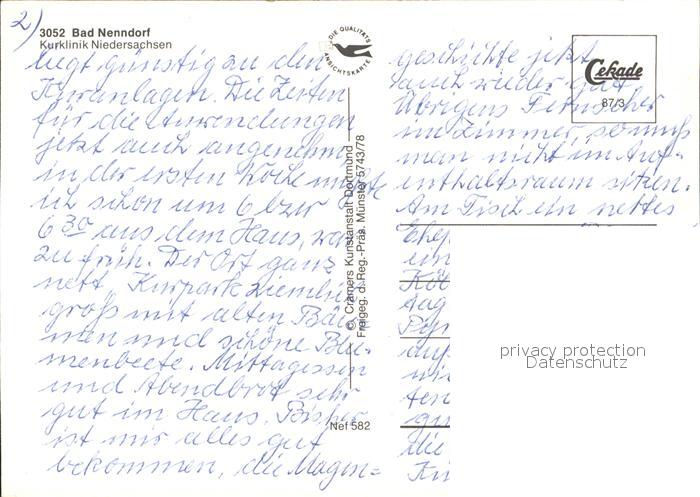 2)
3052 Bad Nenndorf
Kurklinik Niedersachsen
DIE QUALITÄTS
ANSICHTSKARTE
liegt günstig zu den
Kuranlagen. Die Zeiten
für die Anwendungen
jetzt auch angenehm
in der ersten Woche mußte
ich schon um 6 bzw
6 30 aus dem Haus, war
zu früh. Der Ort ganz
nett, Kurpark ziemlich
groß mit alten Bäu-
men und schöne Blu-
menbeete. Mittagessen
und Abendbrot sehr
gut im Haus. Bisher
ist mir alles gut
bekommen, die Magen=
© Cramers Kunstanstalt Dortmund
Freigeg. d. Reg.-Präs. Münster 5743/78
Nef 582
Cekade
87/3
geschichte jetzt
auch wieder gut
Übrigens Fernseher
im Zimmer, so muß
man nicht im Auf-
enthaltsraum sitzen.
Am Tisch ein nettes
Ehe
ein
Köl
Aug
auf
ten
die
privacy protection
Datenschutz